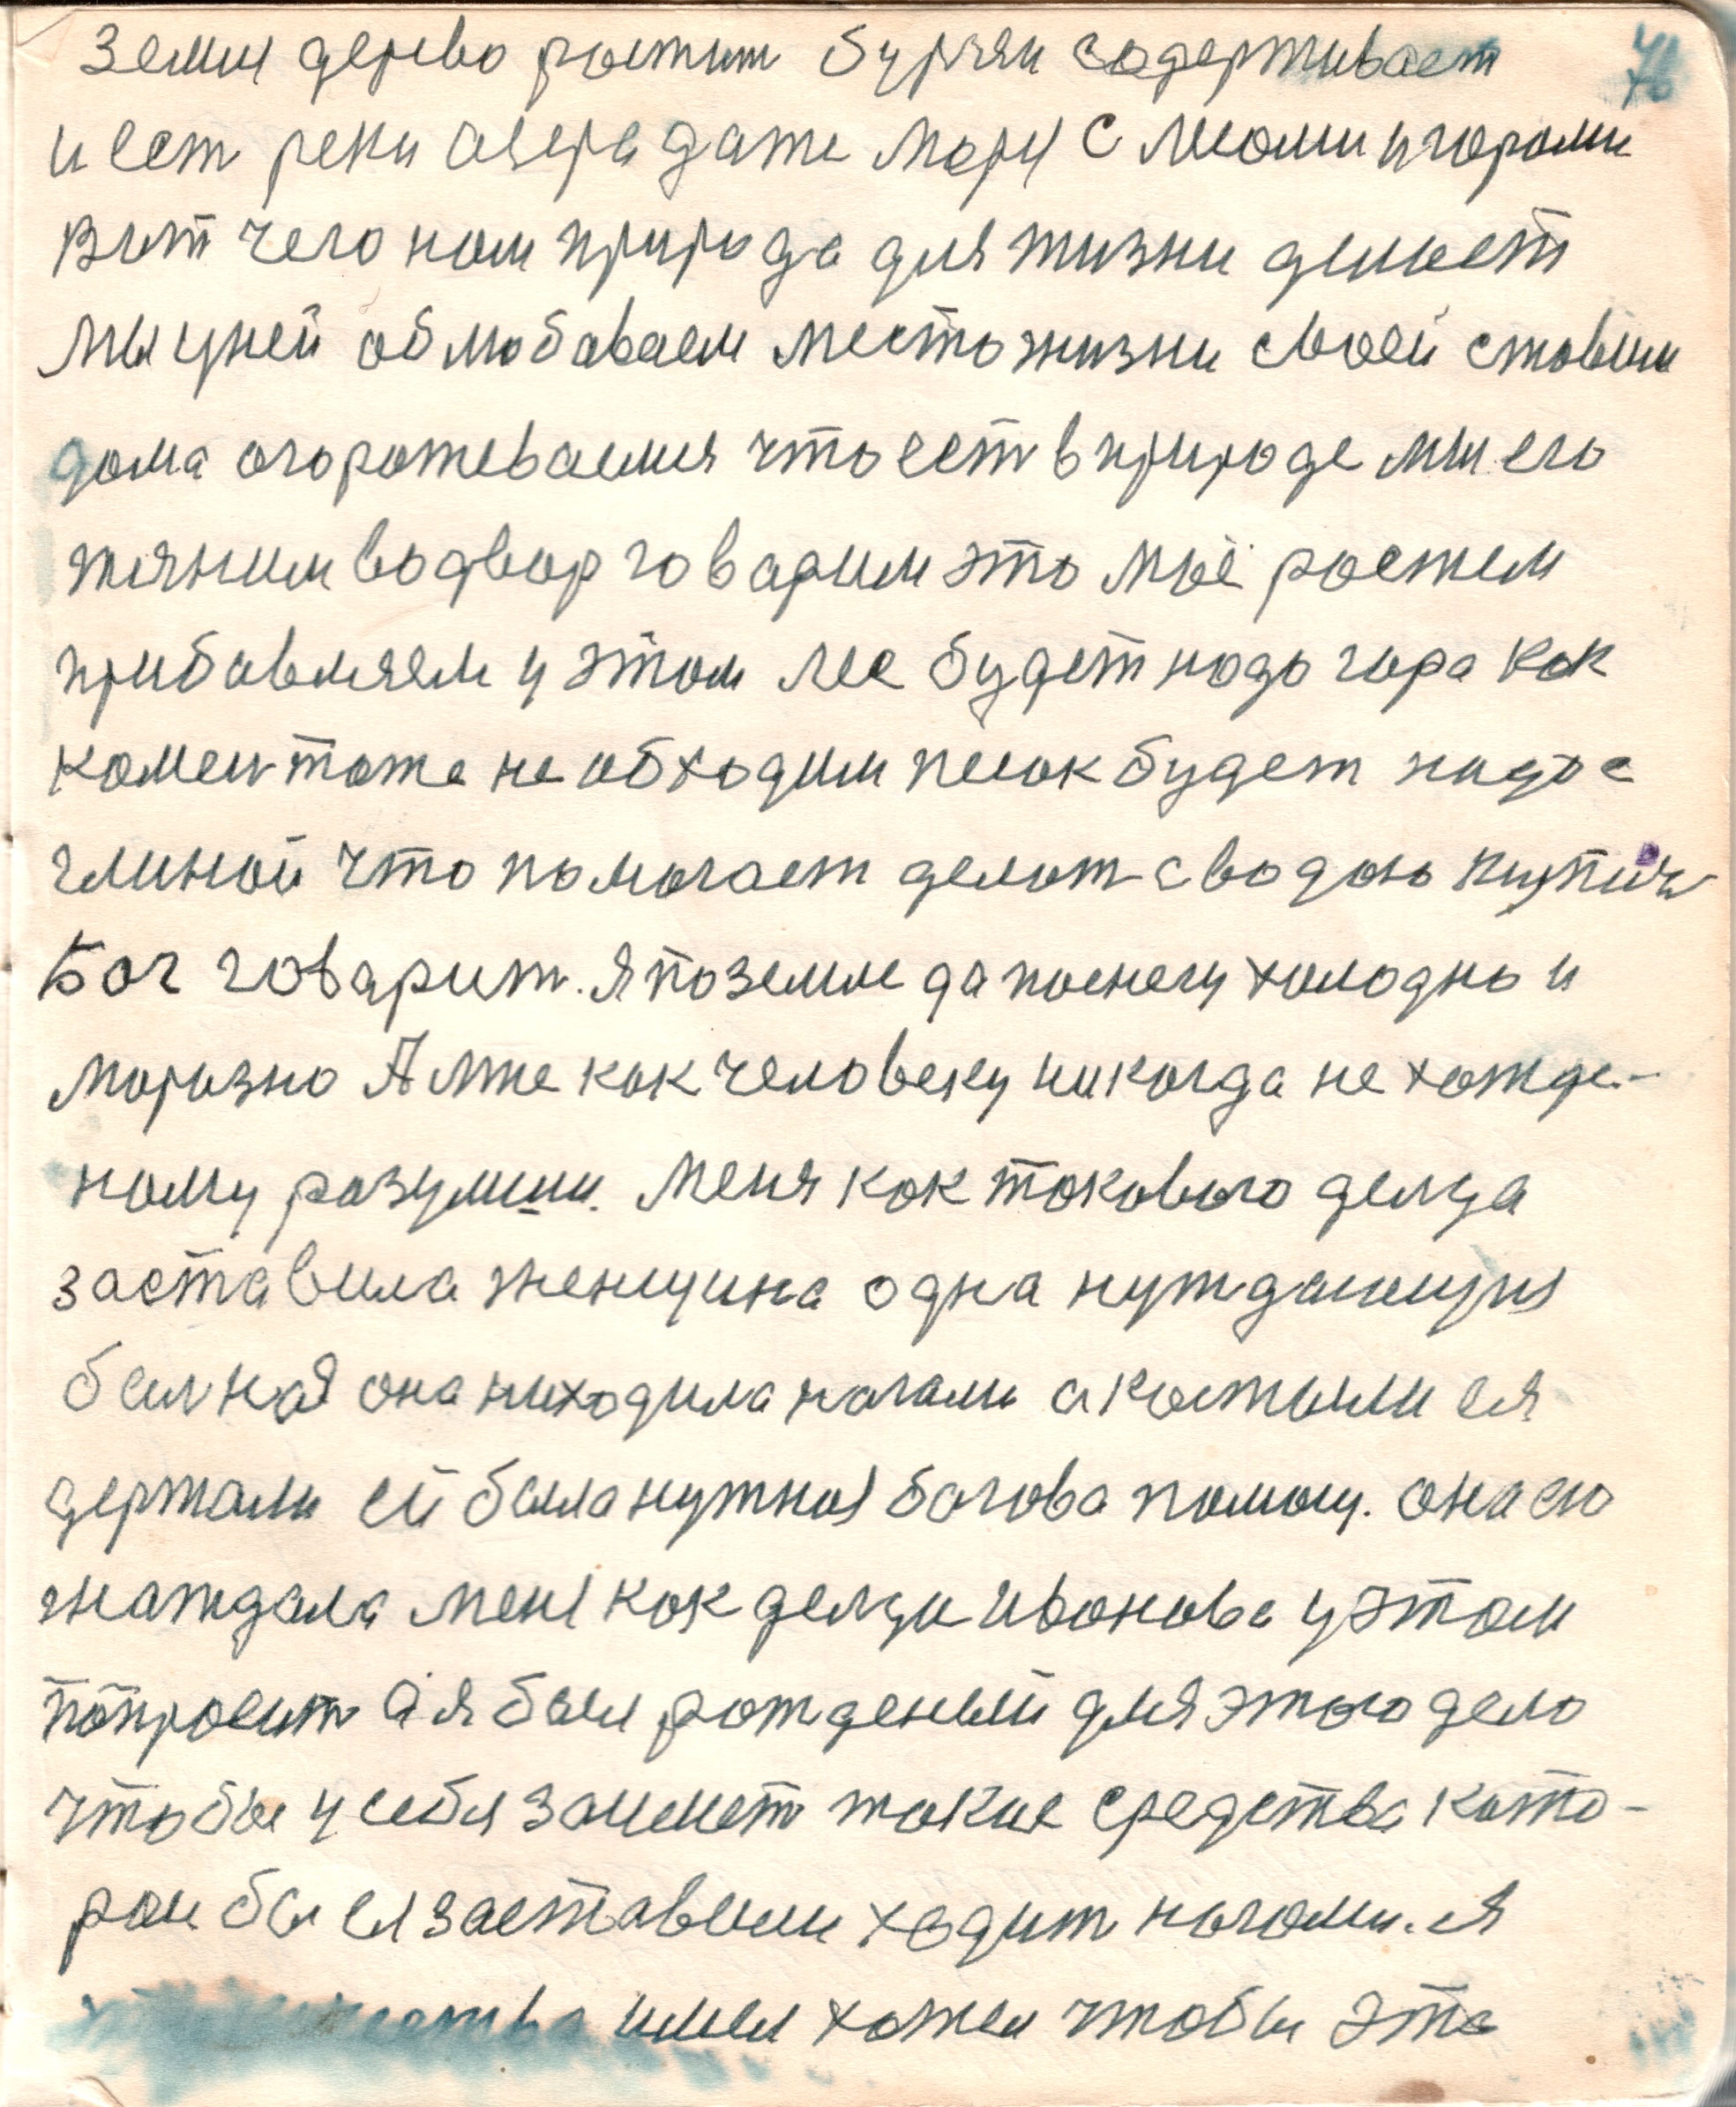 земли дерево ростит бурян содерживает
и ест реки озера даже моря с лесами и горами
Вот чего нам природа для жизни делает
мы у ней облюбаваем место жизни своей ставим
дома огорожеваемся что ест в природе мы его
тяним во двор говарим это моё ростем
прибавляем у этом лес будет надо гора как
камень тоже необходим песок будет надо с
глиной что помогает делат с водою кирпич
Бог говарит. я по земле да по снегу холодно и
морозно А мне как человеку никогда не хожде-
ному разумии. Меня как такового делца
заставила женщина одна нуждающия
болная она ни ходила ногами а костыли ея
держали ей была нужная богова помощ. она ею
жаждала меня как делца иванова у этом
попросит а я был рожденый для этого дело
чтобы у себя заимет такие средства кото-
рои бы ея заставили ходит ногами. я
имел хотел чтобы эта